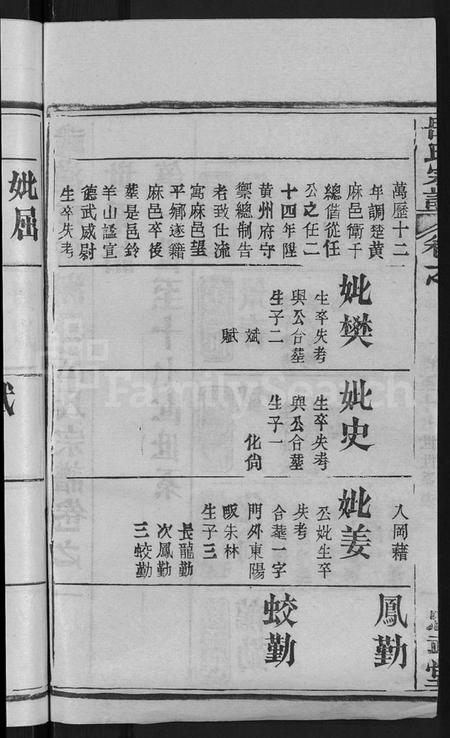 萬歷十二
年調楚黃
麻邑衛千
總偕從任
公之任二
十四年陞
黃州府守
禦總制告
老致仕流
寓麻邑望
平鄉遂籍
麻邑卒後
葬是邑鈴
羊山諡宣
德武威尉
生卒失考
妣樊
生卒失考
與公合葬
生子二
斌
賦
妣史
生卒失考
與公合葬
生子一
化尙
入岡藉
妣姜
公妣生卒
失考
合葬一字
門外東陽
畈朱林
生子三
長龍勤
次鳳勤
三蛟勤
鳳勤
蛟勤
妣屈
FamilySearch